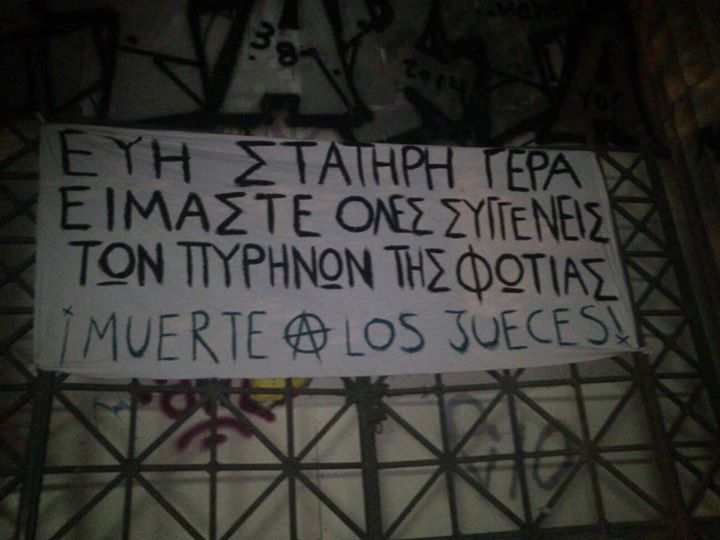 38
ΕΥΗ ΣΤΑΤΗΡΗ ΓΕΡΑ
ΕΙΜΑΣΤΕ ΟΛΕΣ ΣΥΓΓΕΝΕΙΣ
ΤΩΝ ΠΥΡΗΝΩΝ ΤΗΣ ΦΩΤΙΑΣ
¡MUERTE A LOS JUECES!